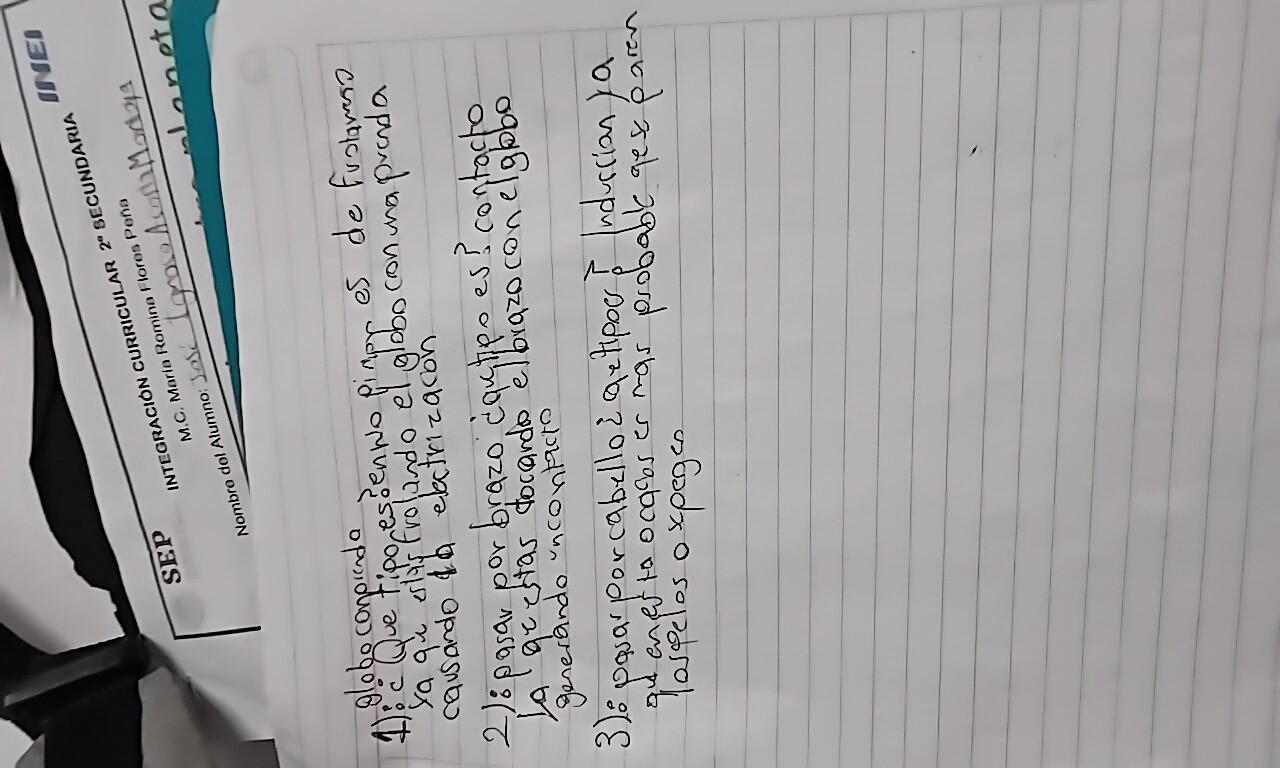 INEI
SEP
INTEGRACIÓN CURRICULAR 2º SECUNDARIA
M.C. María Romina Flores Peña
Nombre del Alumno: José Ignacio
planeta
globo con
1): ¿Que tipo es? en no es de frotamiso
ya que estas frotando el globo con una prenda
causando la electrización
2): pasar por brazo ¿que tipo es? contacto
ya que estas tocando el brazo con el globo
generando un contacto
3): pasar por cabello ¿ que tipo es? Induction ya
que en esta es mas probable que x paren
los pelos o x pegen